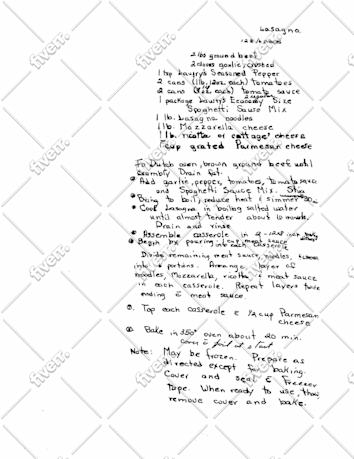 Lasagna
12 servings
2 lbs ground beef
2 cloves garlic, crushed
1 tsp Lawry's Seasoned Pepper
2 cans (1 lb, 12oz. each) tomatoes
2 cans (8oz each) tomato sauce
1 package Lawry's Economy Size
Spaghetti Sauce Mix
1 lb. Lasagna noodles
1 lb. Mozzarella cheese
1 lb. ricotta or cottage cheese
1 cup grated Parmesan cheese
In Dutch oven, brown ground beef until
crumbly Drain fat.
Add garlic, pepper, tomatoes, tomato sauce
and Spaghetti Sauce Mix. Stir
Bring to boil, reduce heat & simmer
Cook Lasagna in boiling salted water
until almost tender about 10 minute,
Drain and rinse
Assemble casserole in 2 -
Begin by pouring 1 cup meat sauce
into each casserole
Divide remaining meat sauce, noodles,
into portions. Arrange layer of
noodles, Mozzarella, ricotta & meat sauce
in each casserole. Repeat layers twice
ending c̄ meat sauce.
Top each casserole c̄ 1/2 cup Parmesan
cheese
Bake in 350° oven about 20 min.
cover c̄ foil at start
Note: May be frozen. Prepare as
directed except for baking.
Cover and seal c̄ Freezer
Tape. When ready to use, thaw
remove cover and bake.
fiverr.